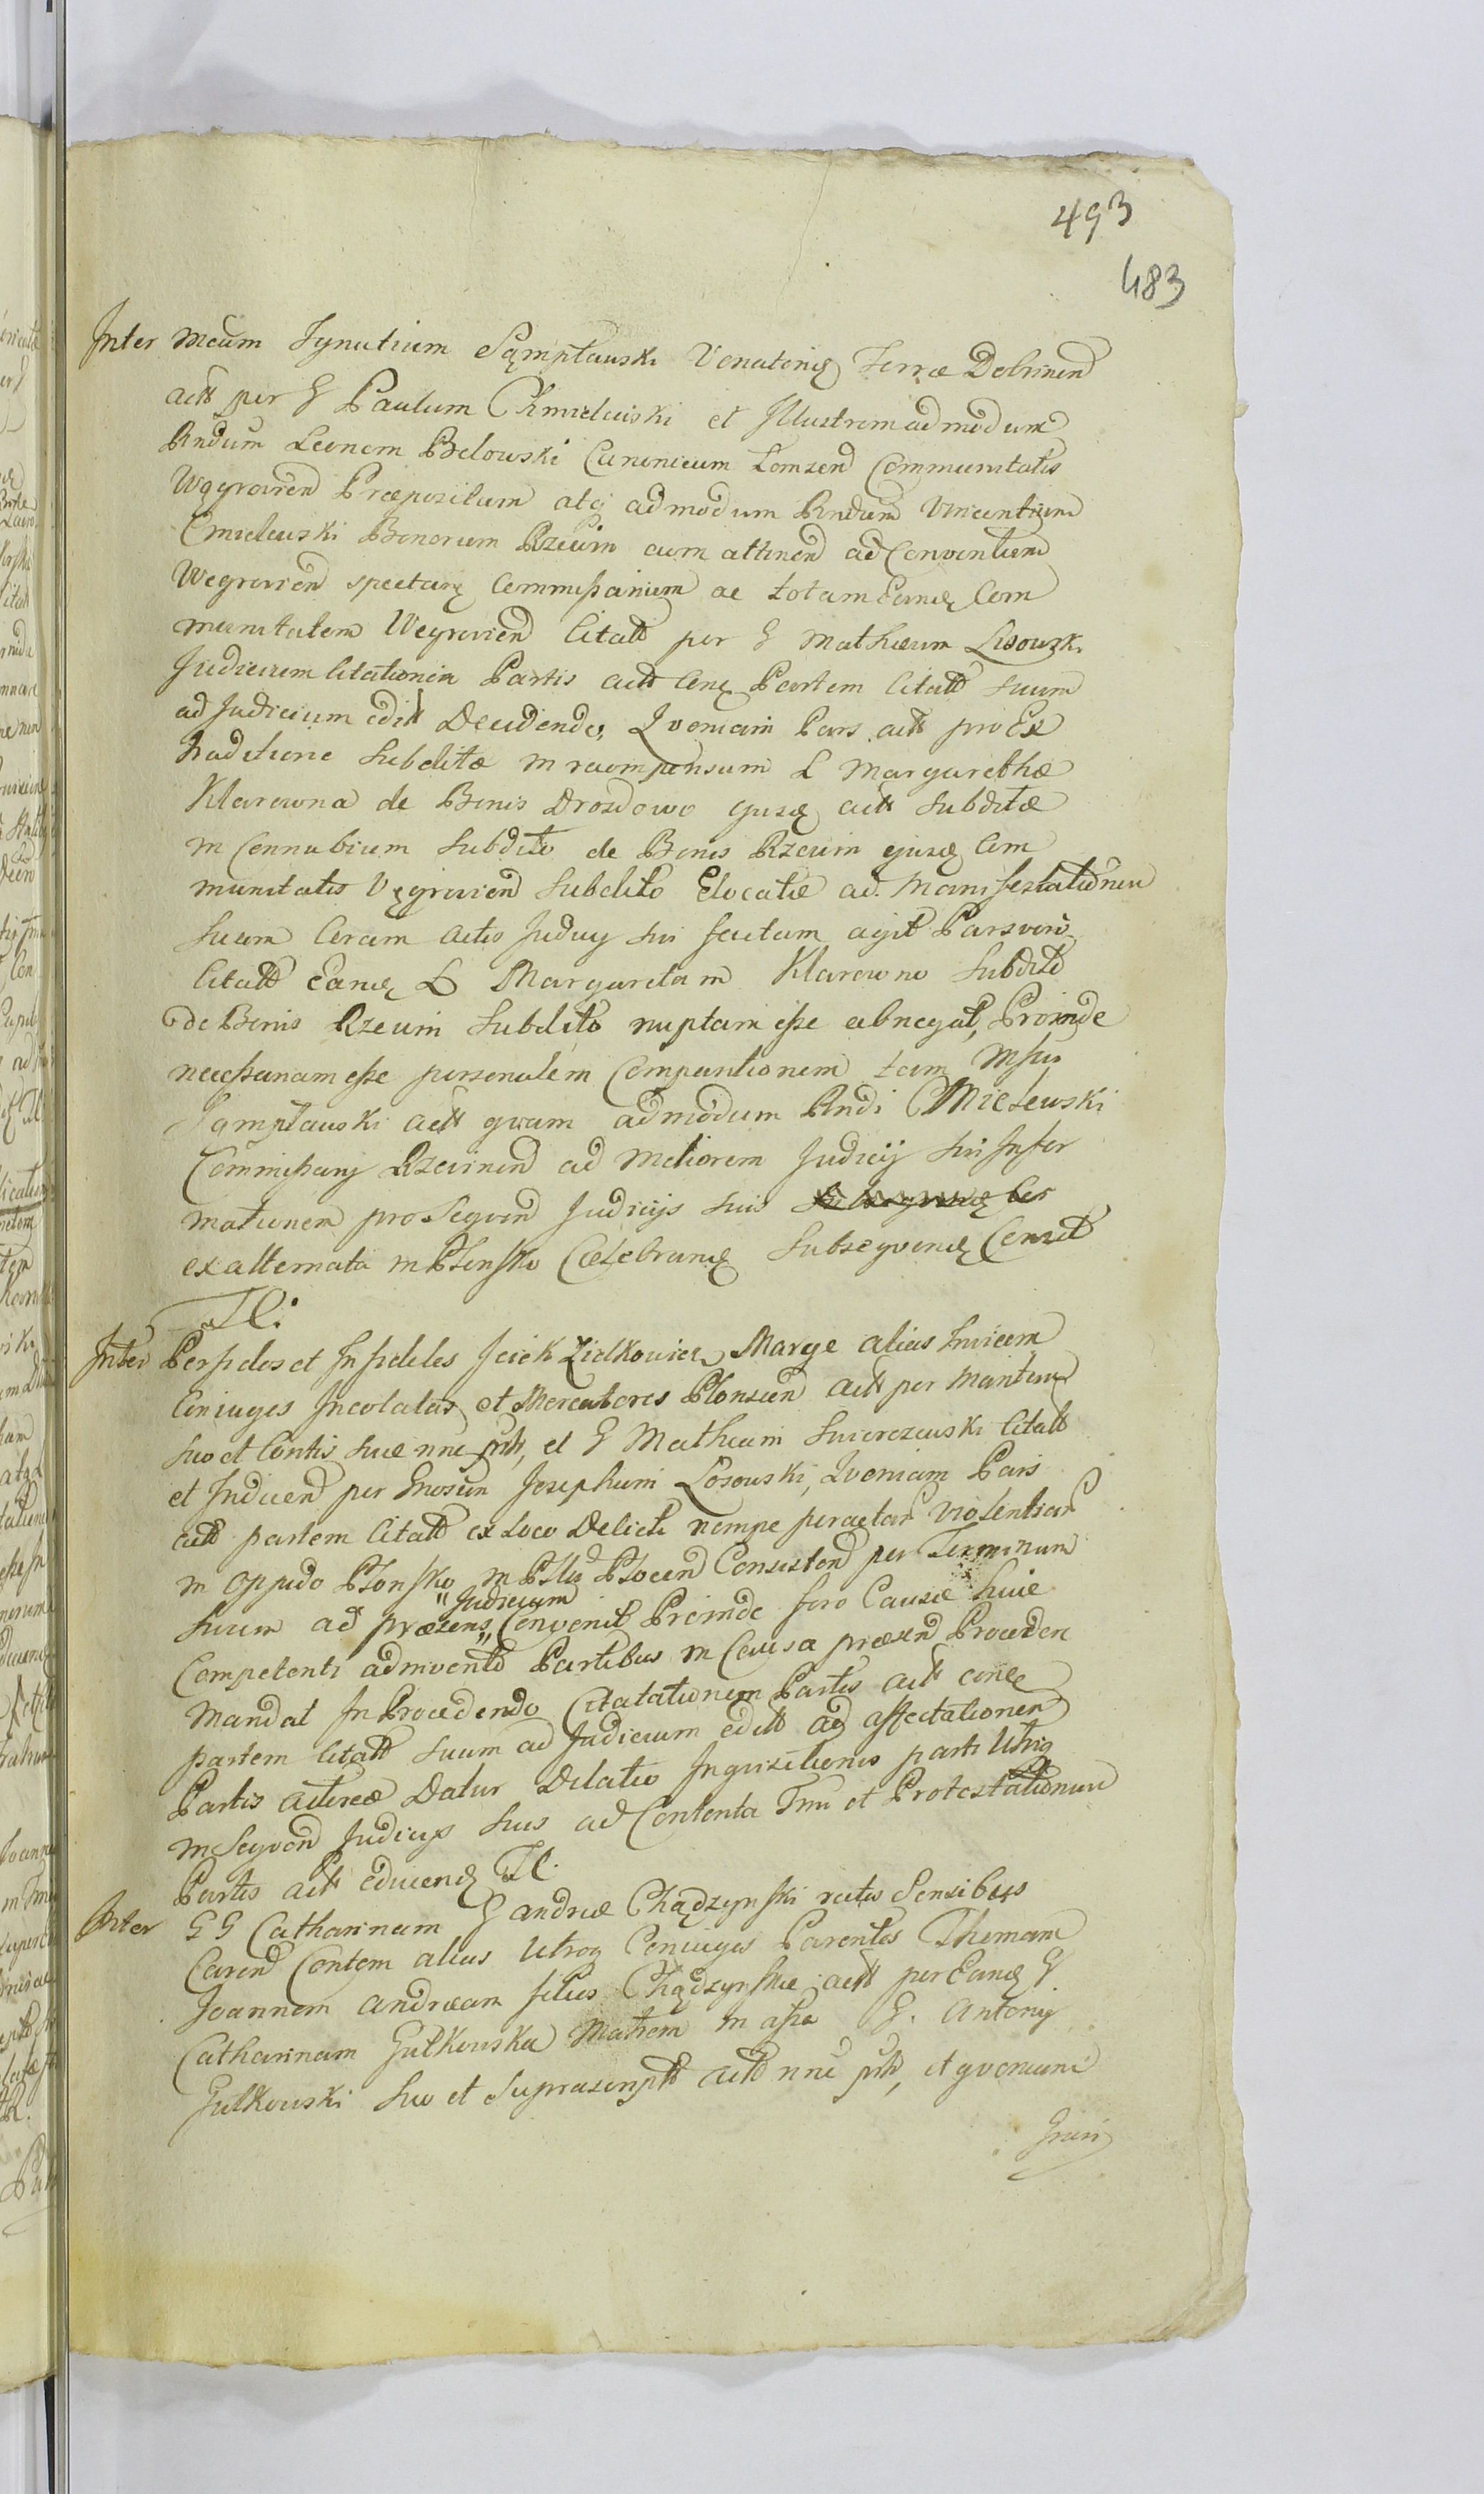 493
483
Inter Mcum Ignatium Sąmpławski Venatorię Terræ Dobrinen
actt per G Paulum Chmielewski et Illustrem admodum
Rndum Leonem Belowski Canonicum Lomzen Communitatis
Węgrovien Præpositum atq admodum Rndum Vincentium
Cmielewski Bonorum Rzewin cum attinen ad Conventum
Wegrovien spectanę Commissarium ac totam Eandę Com
munitatem Wegrovien Citatt per G Mathæum Lisowsk.
Judicium Citationem Partis actt Cenę Partem Citatt suum
ad Judicium editt Decidendo, Qvoniam Pars actt pro Ex
traditione Subditæ in recompensum L Margarethæ
Klarowna de Bonis Drozdowo ejusę actt Subditæ
in Connubium Subdito de Bonis Rzewin ejusę Com
munitatis Vęgrovien Subdito Elocatæ ad Manifestationem
suam Coram actis Judicy sui factam agit Pars vero
Citatt Eandę L Margaretam Klarowno Subdito
de Bonis Rzewin Subdito nuptam esse abnegat, Proinde
necessariam esse personalem Comparitionem tam Msci
Sąmpławski actt qvam admodum Rndi CMielewski
Commissarij Rzewinen ad Meliorem Judicij sui Infor
mationem pro Seqven Judicijs suis
ex alternata in Płonsko Cælebranę Subseqvenę Censet
Tt:
Inter Perfidos et Infideles Icick Zielkowicz Marye alias Invicem
Coniuges Incolatas et Mercatores Płonscen actt per Maritum
suo et Contis suæ nne prtt, et G Mathæum Swierczewski Citatt
et Inducen per Gnosum Josephum Łosowski, Qvoniam Pars
actt partem Citatt ex Loco Delicti nempe peractar Violentiar
in Oppido Płonsko in Pttu Płocen Consisten per Terminum
Judicium
suum ad præsens Convenit Proinde foro Causæ huic
Competenti adinvento Partibus in Causa præsen Procedere
Mandat In Procedendo Citatationem Partis actt conę
partem Citatt suum ad Judicium editt ad affectationem
Partis actoreæ Datur Dilatio Inqvisitionis parti Utriq
in Seqven Judicijs suis ad Contenta Tmi et Protestationum
Partis actt educenę Tt.
Inter GG Catharinam G andreæ Chądzynski rectis Sensibus
Caren Contem alias Utrosq Coniuges Parentes Thomam
Joannem andream filios Chądzynskie actt per Eandę G
Catharinam Gutkowska Matrem in assa G. Antony
Gutkowski suo et Suprascriptt actt nne prtt, et qvoniam